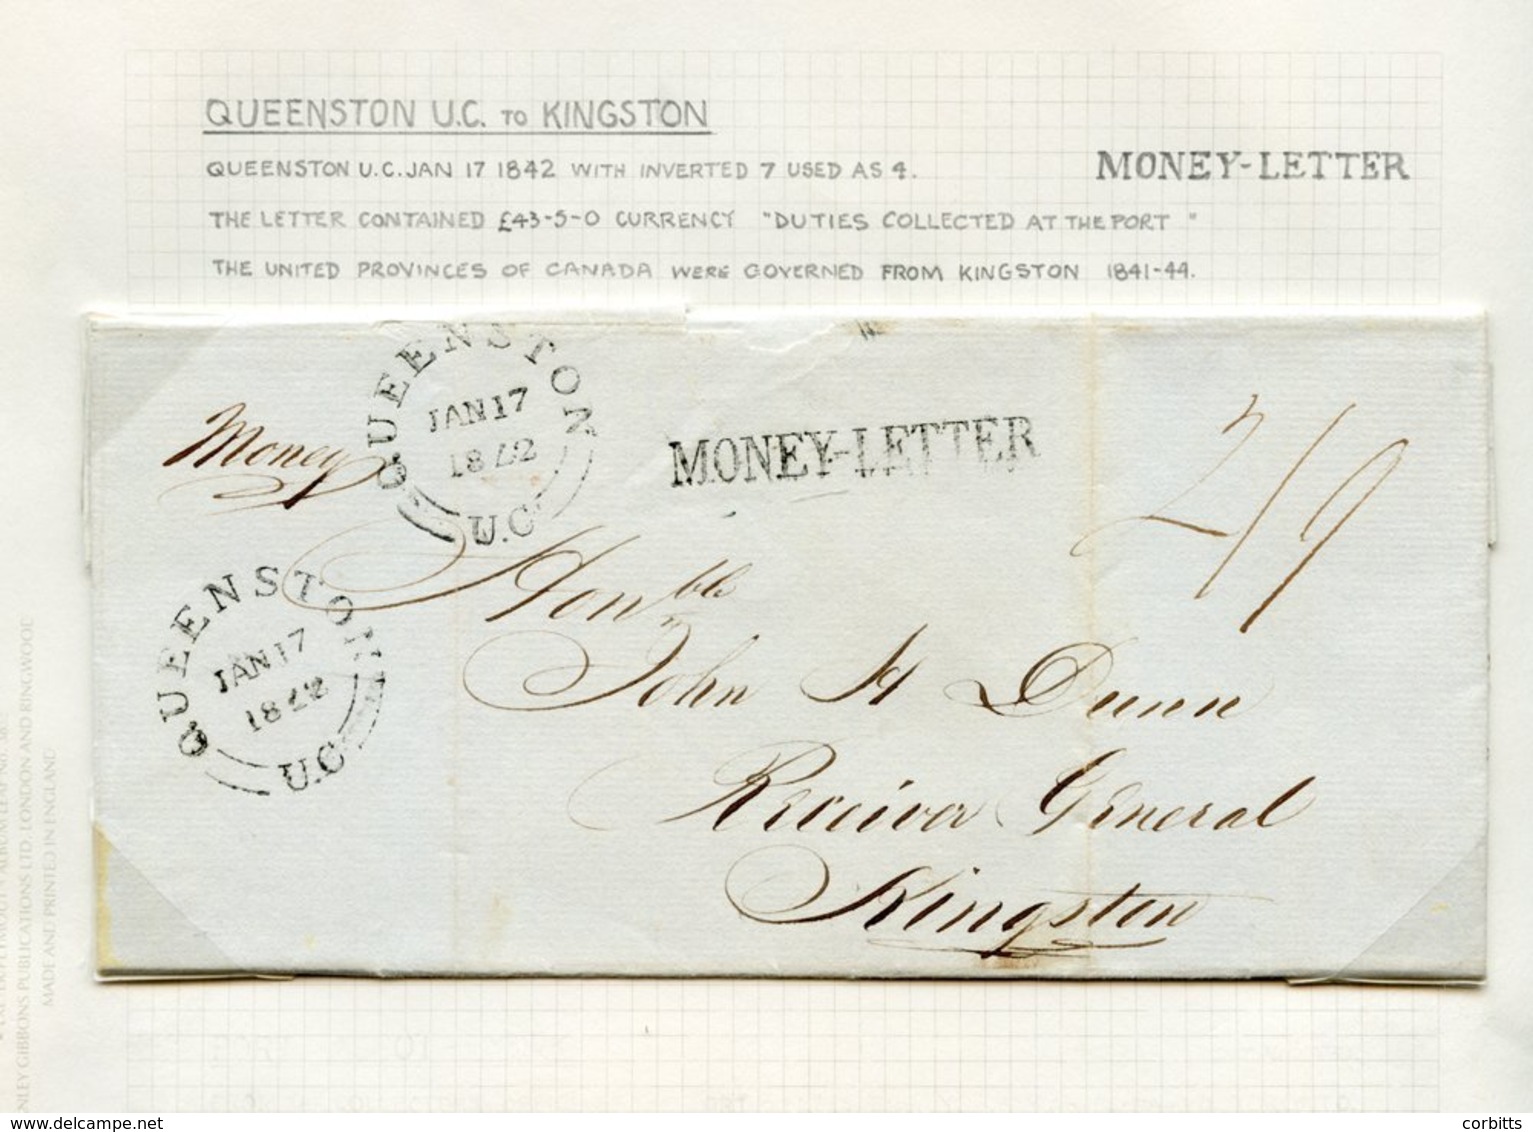 QUEENSTON U.C. TO KINGSTON
QUEENSTON U.C. JAN 17 1842 WITH INVERTED 7 USED AS 4.
MONEY-LETTER
THE LETTER CONTAINED £43-5-0 CURRENCY "DUTIES COLLECTED AT THE PORT"
THE UNITED PROVINCES OF CANADA WERE GOVERNED FROM KINGSTON 1841-44.
QUEENSTON
JAN 17
1842
U.C
Money
MONEY-LETTER
2/9
QUEENSTON
JAN 17
1842
U.C
Honble
John H Dunn
Receiver General
Kingston
NLEY GIBBONS PUBLICATIONS LTD. LONDON AND RINGWOOD
MADE AND PRINTED IN ENGLAND
www.delcampe.net
corbitts